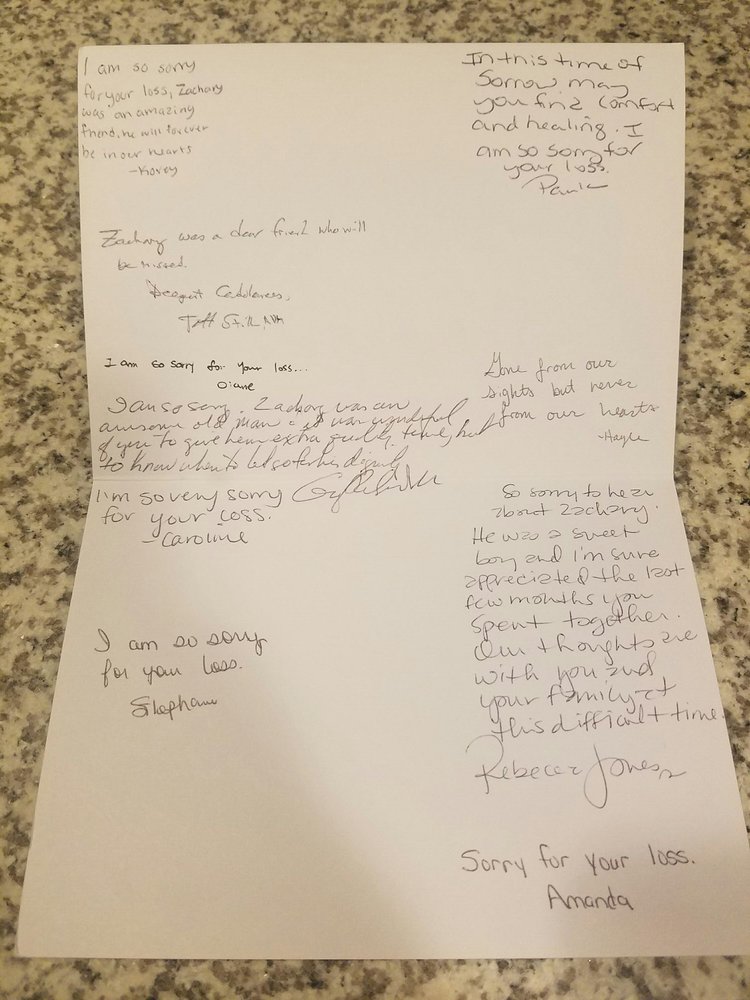 I am so sorry
for your loss, Zachary
was an amazing
friend, he will forever
be in our hearts
-Korey
In this time of
Sorrow may
you find comfort
and healing. I
am so sorry for
your loss.
Zachary was a dear friend who will
be missed.
Deepest Condolences,
I am so sorry for your loss...
Diane
Gone from our
sights but never
from our hearts
I am so sorry. Zachary was an
awesome old man - it was wonderful
of you to give him extra quality time, but
to know when to let go for his dignity
I'm so very sorry
for your loss.
-Caroline
So sorry to hear
about Zachary.
He was a sweet
boy and I'm sure
appreciated the last
few months you
spent together.
Our thoughts are
with you and
your family at
this difficult time.
Rebecca Jones
I am so sorry
for your loss.
Stephanie
Sorry for your loss.
Amanda